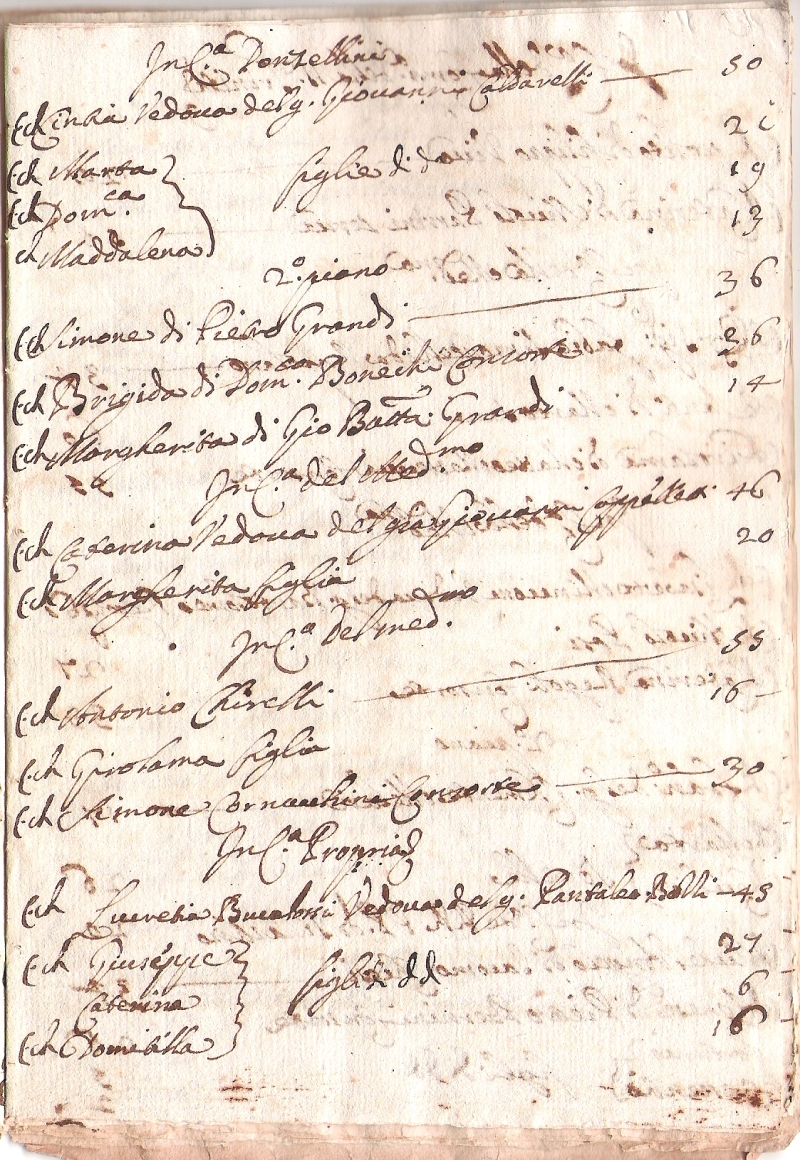 In C.ª Donzellini
C. ch Cintia Vedova del q. Giovanni Caldarelli — 50
C. ch Marta 21
C. ch Dom.ca figlie di d.a 19
ch Maddalena 13
2.º piano
C. ch Simone di Pietro Grandi — 36
C. ch Brigida di Dom.co Bonechi Consorte 36
C. ch Margherita di Gio Batta Grandi 14
In C.ª del Med.mo
C. ch Caterina Vedova del q. Giovanni 46
C. ch Margherita figlia 20
In C.ª Del med.mo
C. ch Antonio Chirelli — 55
C. ch Girolama figlia 16
C. ch Simone Cornacchini Consorte — 30
In C.ª Propria
C. ch Lucretia Vedova del q. Pantaleo Belli — 45
C. ch Giuseppe 27
Caterina figli di d.a 6
C. ch Domitilla 16